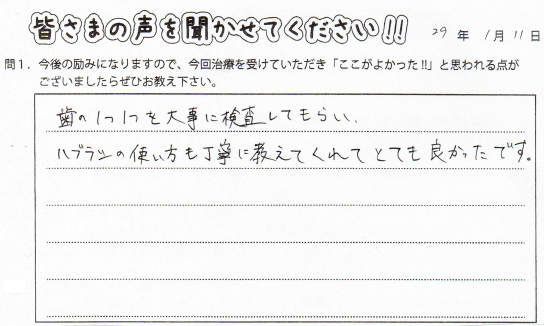 皆さまの声を聞かせてください!! 29年 1月 11日
問1. 今後の励みになりますので、今回治療を受けていただき「ここがよかった!!」と思われる点が
ございましたらぜひお教え下さい。
歯の1つ1つを大事に検査してもらい、
ハブラシの使い方も丁寧に教えてくれてとても良かったです。